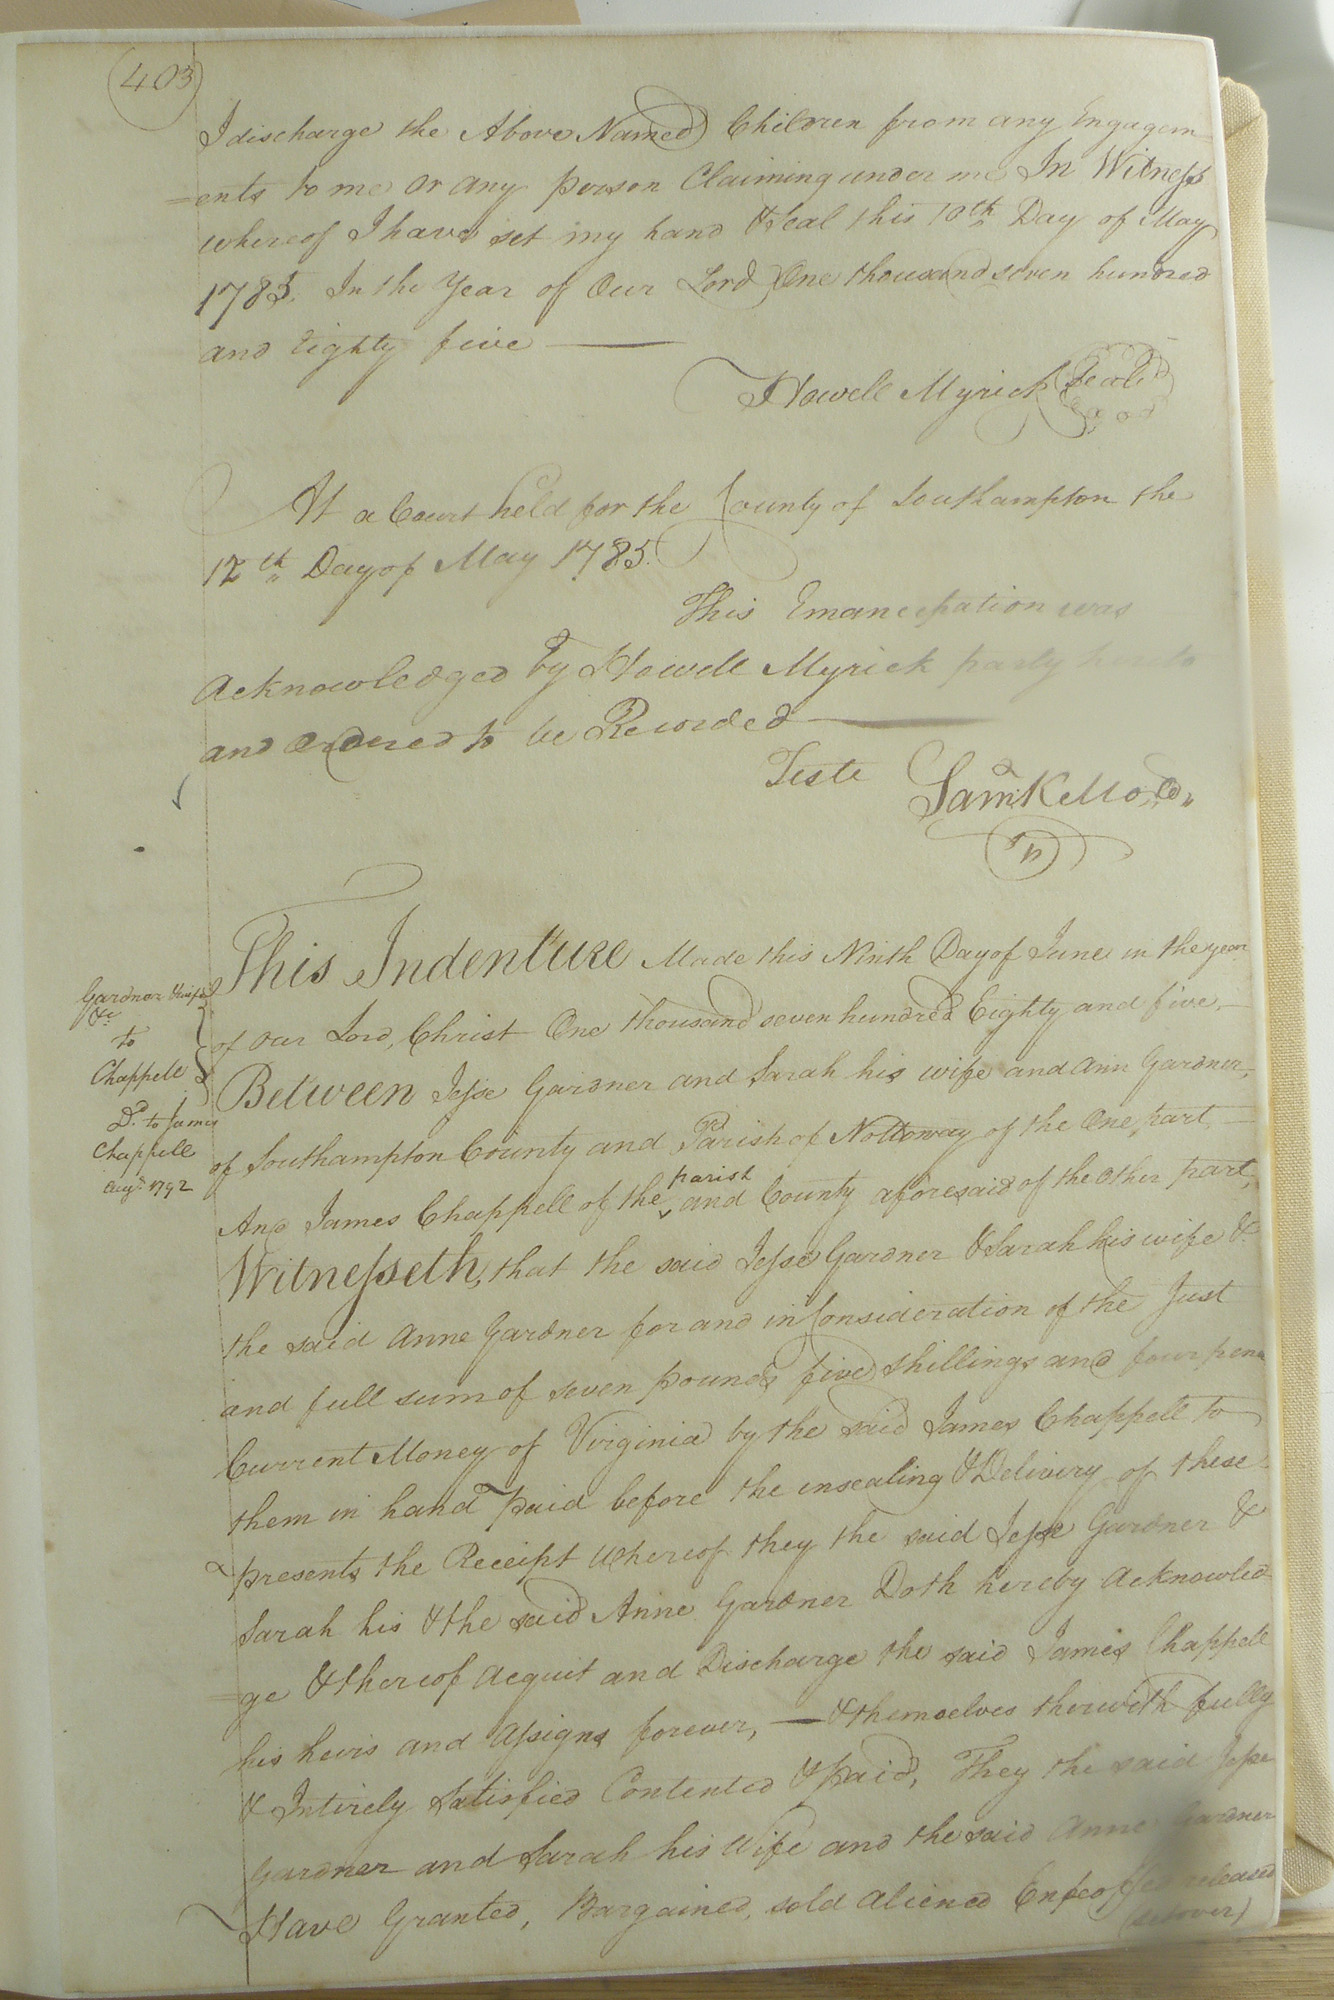 403
I discharge the Above Named Children from any Engagem
=ents to me or any person Claiming under me In Witness
whereof I have set my hand & Seal this 10th Day of May
1785. In the Year of Our Lord One thousand seven hundred
and Eighty five
Howell Myrick Seal
At a Court held for the County of Southampton the
12th Day of May 1785.
This Emancipation was
Acknowledged by Howell Myrick party hereto
and Ordered to be Recorded
Teste Saml Kello
Gardner &
&c
to
Chappell
Do. to James
Chappell
Augt 1792
This Indenture Made this Ninth Day of June in the year
of our Lord, Christ One thousand seven hundred Eighty and five,
Between Jesse Gardner and Sarah his wife and Ann Gardner,
of Southampton County and Parish of Nottoway of the One part
And James Chappell of the parish and County aforesaid of the other part,
Witnesseth, that the said Jesse Gardner & Sarah his wife &
the said Anne Gardner for and in Consideration of the Just
and full sum of seven pounds five shillings and four pence
Current Money of Virginia by the said James Chappell to
them in hand paid before the insealing & Delivery of these
presents the Receipt whereof they the said Jesse Gardner &
Sarah his & the said Anne Gardner Doth hereby Acknowled
=ge & thereof Acquit and Discharge the said James Chappell
his heirs and Assigns forever, & themselves therwith fully
& Intirely Satisfied Contented & paid, They the said Jesse
Gardner and Sarah his Wife and the said Anne Gardner
Have Granted, Bargained, sold aliened Enfeoffed released